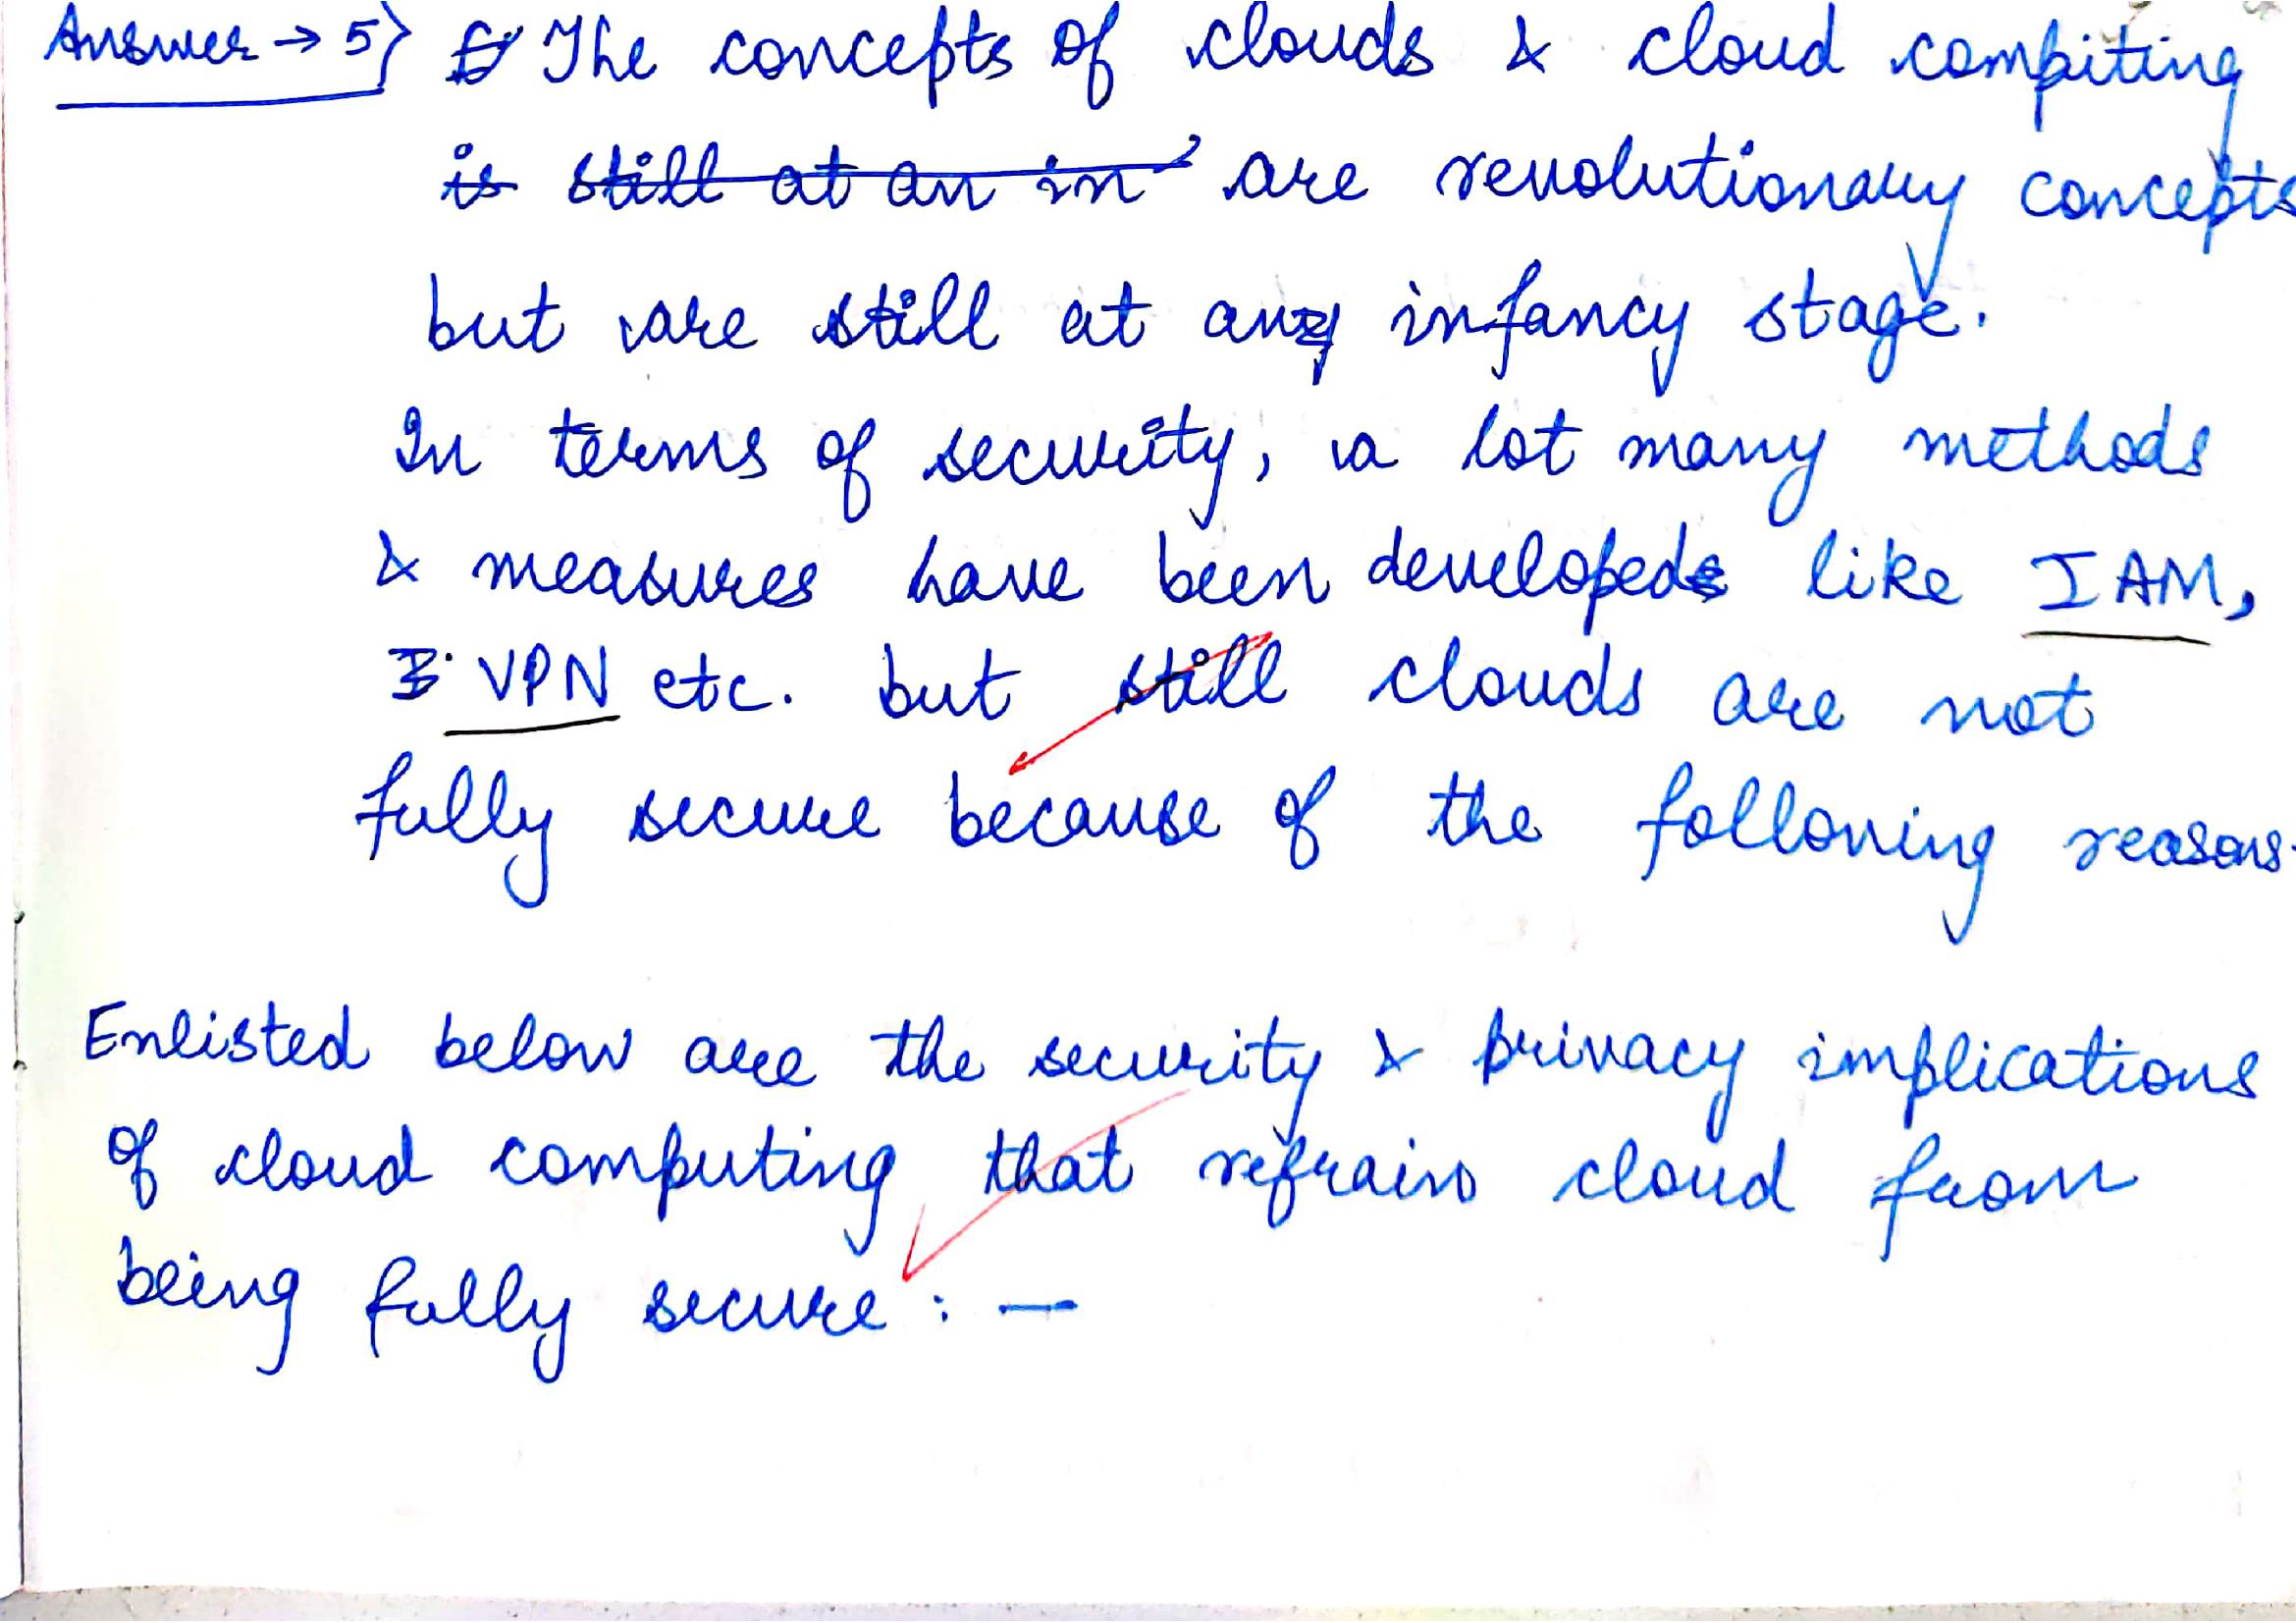 Answer → 5) The concepts of clouds & cloud compiting
is still at an in are revolutionary concepts
but are still at any infancy stage.
In terms of security, a lot many methods
& measures have been developed like IAM,
VPN etc. but still clouds are not
fully secure because of the following reasons.
Enlisted below are the security & privacy implications
of cloud computing that refrain cloud from
being fully secure : —